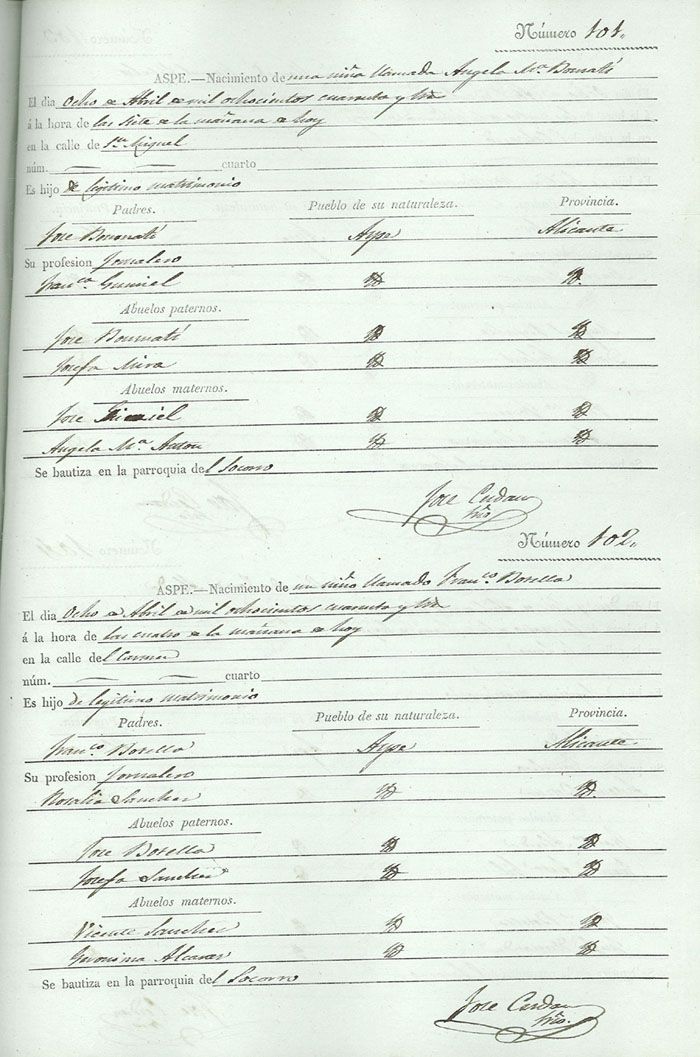 Número 101.
ASPE.—Nacimiento de una niña llamada Angela Mª. Bonmatí
El dia Ocho de Abril de mil ochocientos cuarenta y tres
á la hora de las siete de la mañana de hoy
en la calle de Sn. Miguel
núm. — — cuarto
Es hijo de legitimo matrimonio
Padres. Pueblo de su naturaleza. Provincia.
Jose Bonmatí Aspe Alicante
Su profesion Jornalero
Franca. Gumiel Yd Yd.
Abuelos paternos.
Jose Bonmatí Yd Yd
Josefa Mira Yd Yd
Abuelos maternos.
Jose Gumiel Yd Yd
Angela Mª. Anton Yd Yd
Se bautiza en la parroquia del Socorro
Jose Cerdan
Número 102.
ASPE.—Nacimiento de un niño llamado Franco. Botella
El dia Ocho de Abril de mil ochocientos cuarenta y tres
á la hora de las cuatro de la mañana de hoy
en la calle del Carmen
núm. — — cuarto
Es hijo de legitimo matrimonio
Padres. Pueblo de su naturaleza. Provincia.
Franco. Botella Aspe Alicante
Su profesion Jornalero
Rosalia Sanchez Yd Yd.
Abuelos paternos.
Jose Botella Yd Yd
Josefa Sanchez Yd Yd
Abuelos maternos.
Vicente Sanchez Yd Yd
Geronima Alcaraz Yd Yd
Se bautiza en la parroquia del Socorro
Jose Cerdan